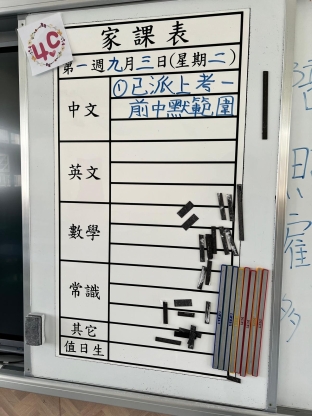 4C
家課表
第一週九月三日(星期二)
中文
①已派上考一
前中默範圍
英文
數學
常識
其它
值日生